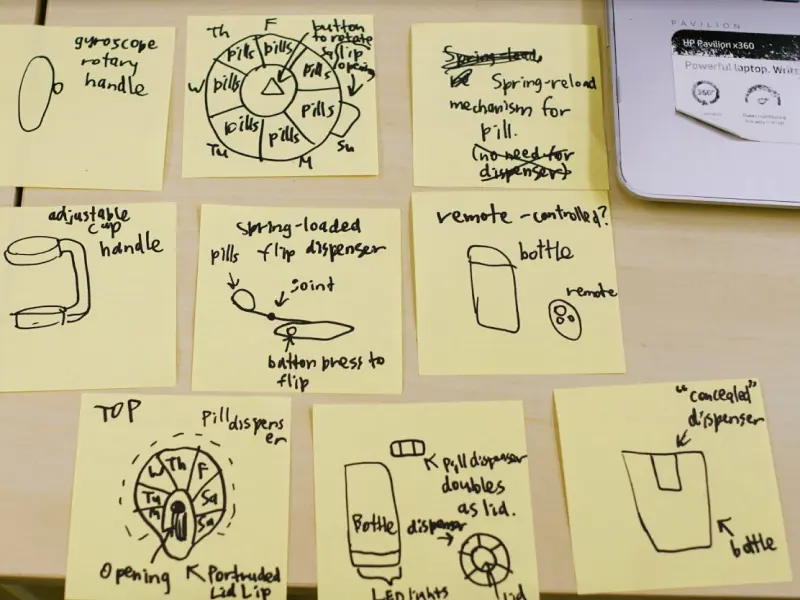 gyroscope
rotary
handle
Th
F
W
Tu
M
Su
pills
pills
pills
pills
pills
pills
pills
button
to rotate
flip
opening
Spring-load
Spring-reload
mechanism for
pill.
(no need for
dispenser)
PAVILION
HP Pavilion x360
Powerful laptop. Writ
360°
adjustable
cup
handle
spring-loaded
pills flip dispenser
joint
button press to
flip
remote-controlled?
bottle
remote
TOP
Pill dispens
er
W Th F
Tu Sa
M Su
Opening
Portruded
Lid Lip
pill dispenser
doubles
as lid.
Bottle
dispenser
LED lights
lid
"concealed"
dispenser
bottle